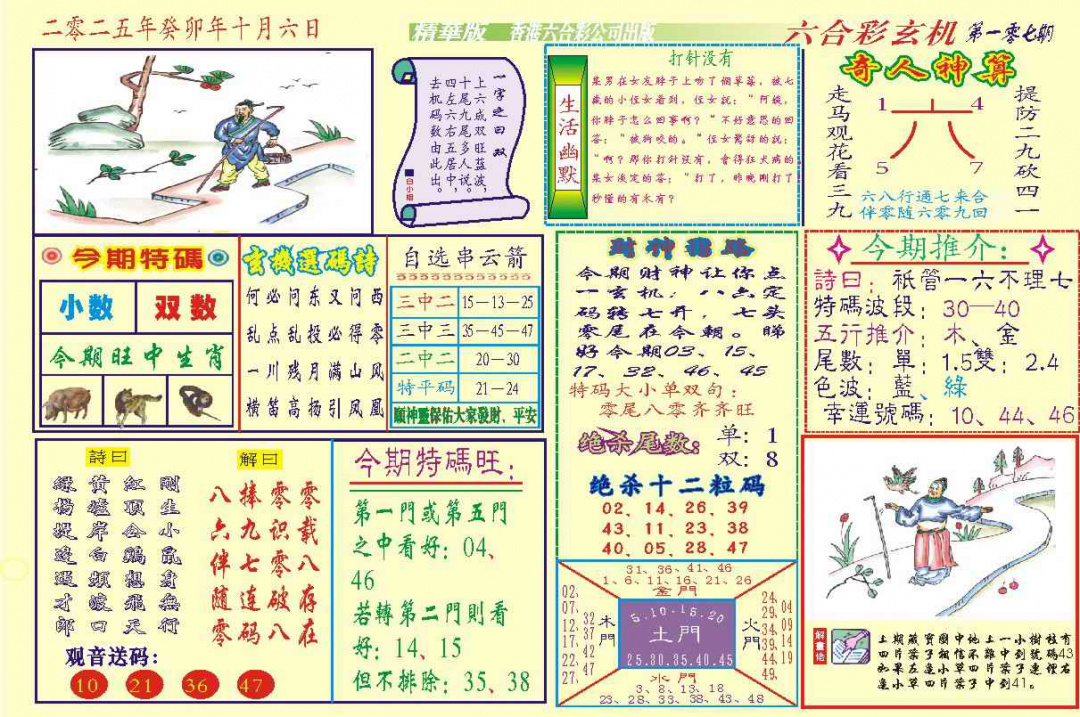 二零二五年癸卯年十月六日
精華版 香港六合彩公司出版
六合彩玄机 第一零七期
一字之曰双
上六成双旺蓝波
十尾九尾五多说
四左六右居人中
去机码数由此出。
白小姐
生活幽默
打针没有
某男在女友脖子上吻了個草莓，被七
歲的小侄女看到，侄女說：“阿姨，
你脖子怎么回事啊？”不好意思的回
答：“被狗咬的。”侄女驚訝的說：
“啊？那你打針沒有，會得狂犬病的
某女淡定的答：“打了，昨晚剛打了
秒懂的有木有？
奇人神算
走马观花看三九
1 4
六
5 7
提防二九砍四一
六八行通七来合
伴零随六零九回
今期特碼
小数 双数
今期旺中生肖
玄機選碼詩
何必问东又问西
乱点乱投必得零
一川残月满山风
横笛高扬引凤凰
自选串云箭
三中二 15—13—25
三中三 35—45—47
二中二 20—30
特平码 21—24
願神靈保佑大家發財、平安
財神報路
今期财神让你点
一玄机，八六定
码转七开，七头
零尾在今朝。睇
好今期03、15、
17、32、46、45
特码大小单双句：
零尾八零齐齐旺
绝杀尾数： 单：1
双：8
绝杀十二粒码
02、14、26、39
43、11、23、38
40、05、28、47
今期推介：
詩曰：衹管一六不理七
特碼波段：30—40
五行推介：木、金
尾數：單：1.5雙：2.4
色波：藍、綠
幸運號碼：10、44、46
詩曰
剛生小鼠身無行
紅頂公鷄想飛天
黄爐岸白頻渡口
綠楊堤邊遇才郎
解曰
零载八存在
零识零破八
捧九七连码
八六伴随零
观音送码：
10 21 36 47
今期特碼旺：
第一門或第五門
之中看好：04、
46
若轉第二門則看
好：14、15
但不排除：35、38
31、36、41、46
1、6、11、16、21、26
金門
02、07、12、17、22、27、
32 37 42 47
木門
5.10.15.20
土門
25.30.35.40.45
火門
24、29、34、39、44、49、
04 09 14 19
水門
3、8、13、18
23、28、33、38、43、48
解畫佬
上期藏寶圖中地上一小樹枝有
四片葉子相信不難中到號碼43
如果左邊小草四片葉子連裡右
邊小草四片葉子中到41。